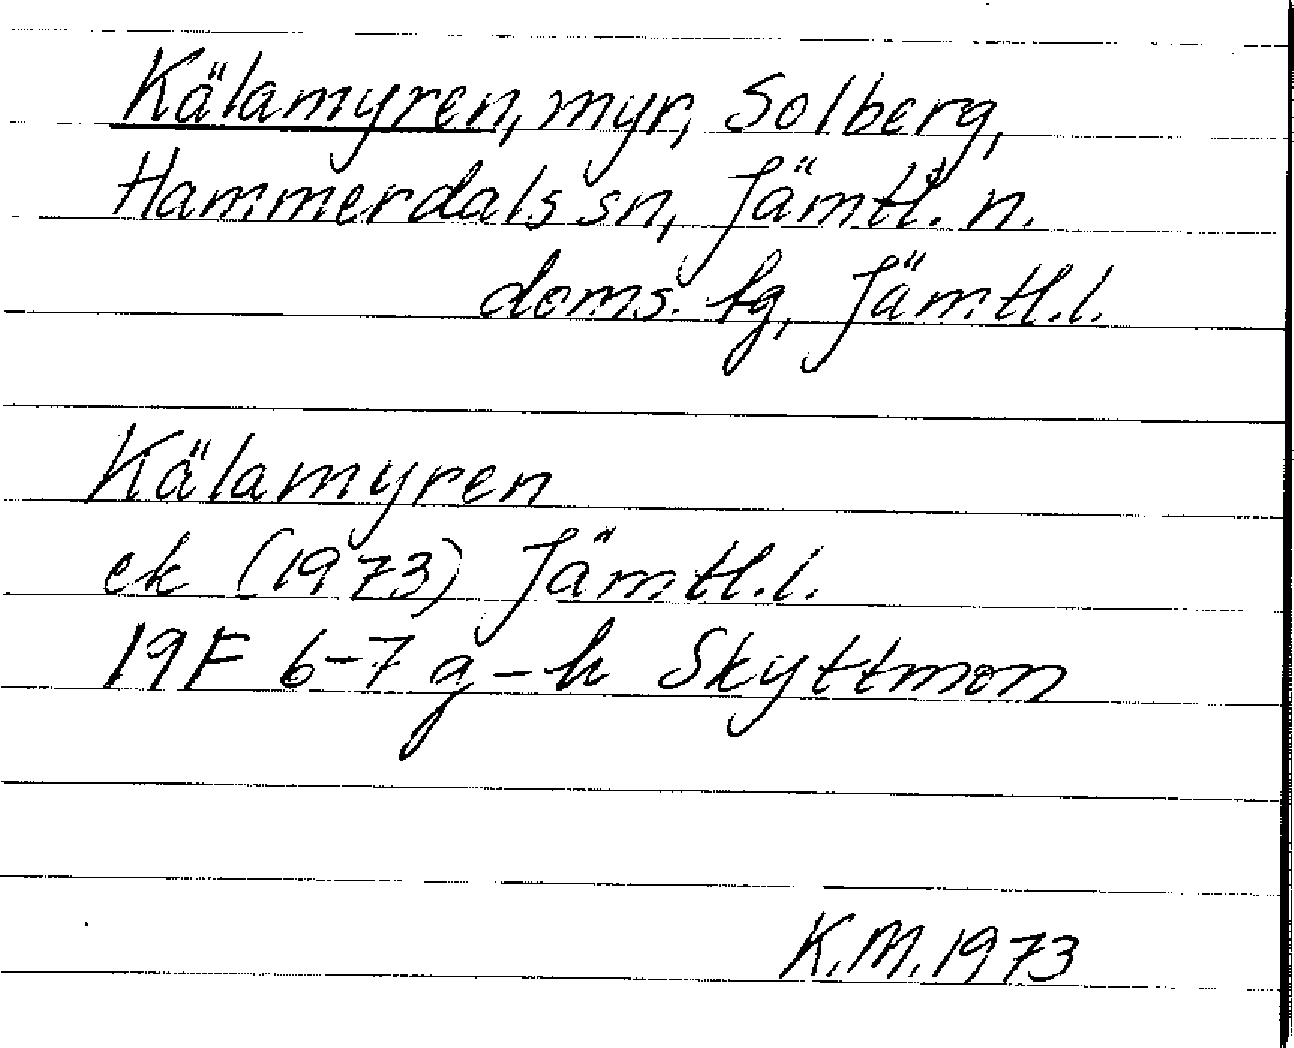 Kälamyren, myr, Solberg,
Hammerdals sn, Jämtl. n.
doms. tg, Jämtl.l.
Kälamyren
ek (1973) Jämtl.l.
19F 6-7 g-h Skyttmon
K.M.1973